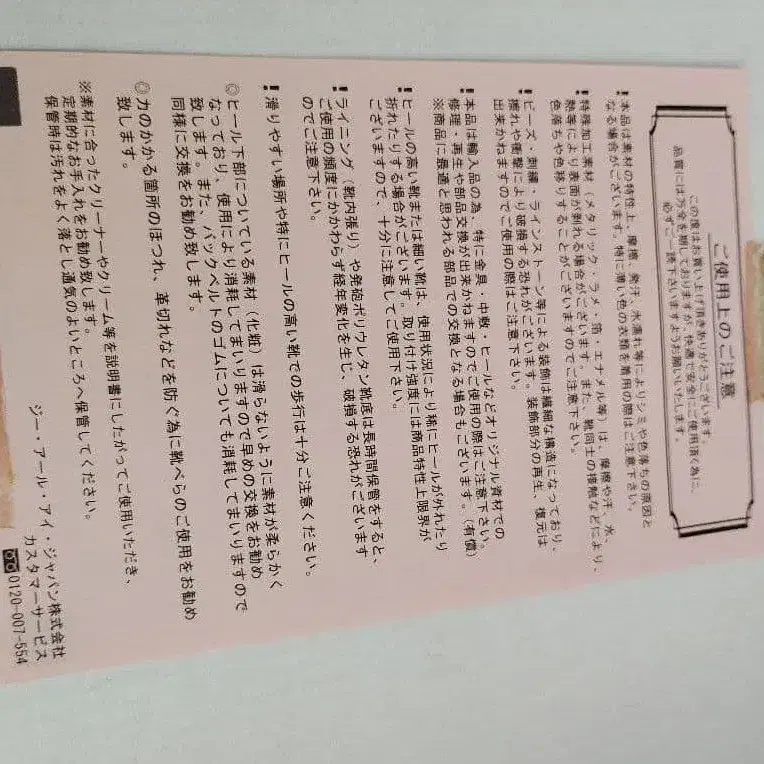 ご使用上のご注意
この度はお買い上げ頂きありがとうございます。
品質には万全を期しておりますが、快適で安全にご使用頂く為に、
必ずご一読下さいますようお願いいたします。
!本品は素材の特性上、摩擦、発汗、水濡れ等によりシミや色落ちの原因と
なる場合がございます。特に薄い色の衣類を着用の際はご注意下さい。
!特殊加工素材(メタリック・ラメ・箔・エナメル等)は、摩擦や汗、水、
熱等により表面が剥れる場合がございます。また、靴同士の接触などにより、
色落ちや色移りすることがございますのでご注意下さい。
!ビーズ・刺繍・ラインストーン等による装飾は繊細な構造になっており、
擦れや衝撃により破損する恐れがございます。装飾部分の再生、復元は
出来かねますのでご使用の際はご注意下さい。
!本品は輸入品の為、特に金具・中敷・ヒールなどオリジナル資材での
修理・再生や部品交換が出来かねますのでご使用の際はご注意下さい。
※商品に最適と思われる部品での交換となる場合もございます。(有償)
!ヒールの高い靴または細い靴は、使用状況により稀にヒールが外れたり
折れたりする場合がございます。取り付け強度には商品特性上限界が
ございますので、十分に注意してご使用下さい。
!ライニング(靴内張り)や発泡ポリウレタン靴底は長時間保管をすると、
ご使用の頻度にかかわらず経年変化を生じ、破損する恐れがございます
のでご注意下さい。
!滑りやすい場所や特にヒールの高い靴での歩行は十分ご注意ください。
◎ヒール下部についている素材(化粧)は滑らないように素材が柔らかく
なっており、使用により消耗してまいりますので早めの交換をお勧め
致します。また、バックベルトのゴムについても消耗してまいりますので
同様に交換をお勧め致します。
◎力のかかる箇所のほつれ、革切れなどを防ぐ為に靴べらのご使用をお勧め
致します。
※素材に合ったクリーナーやクリーム等を説明書にしたがってご使用いただき、
定期的なお手入れをお勧め致します。
保管時は汚れをよく落とし通気のよいところへ保管してください。
ジー・アール・アイ・ジャパン株式会社
カスタマーサービス
0120-007-554